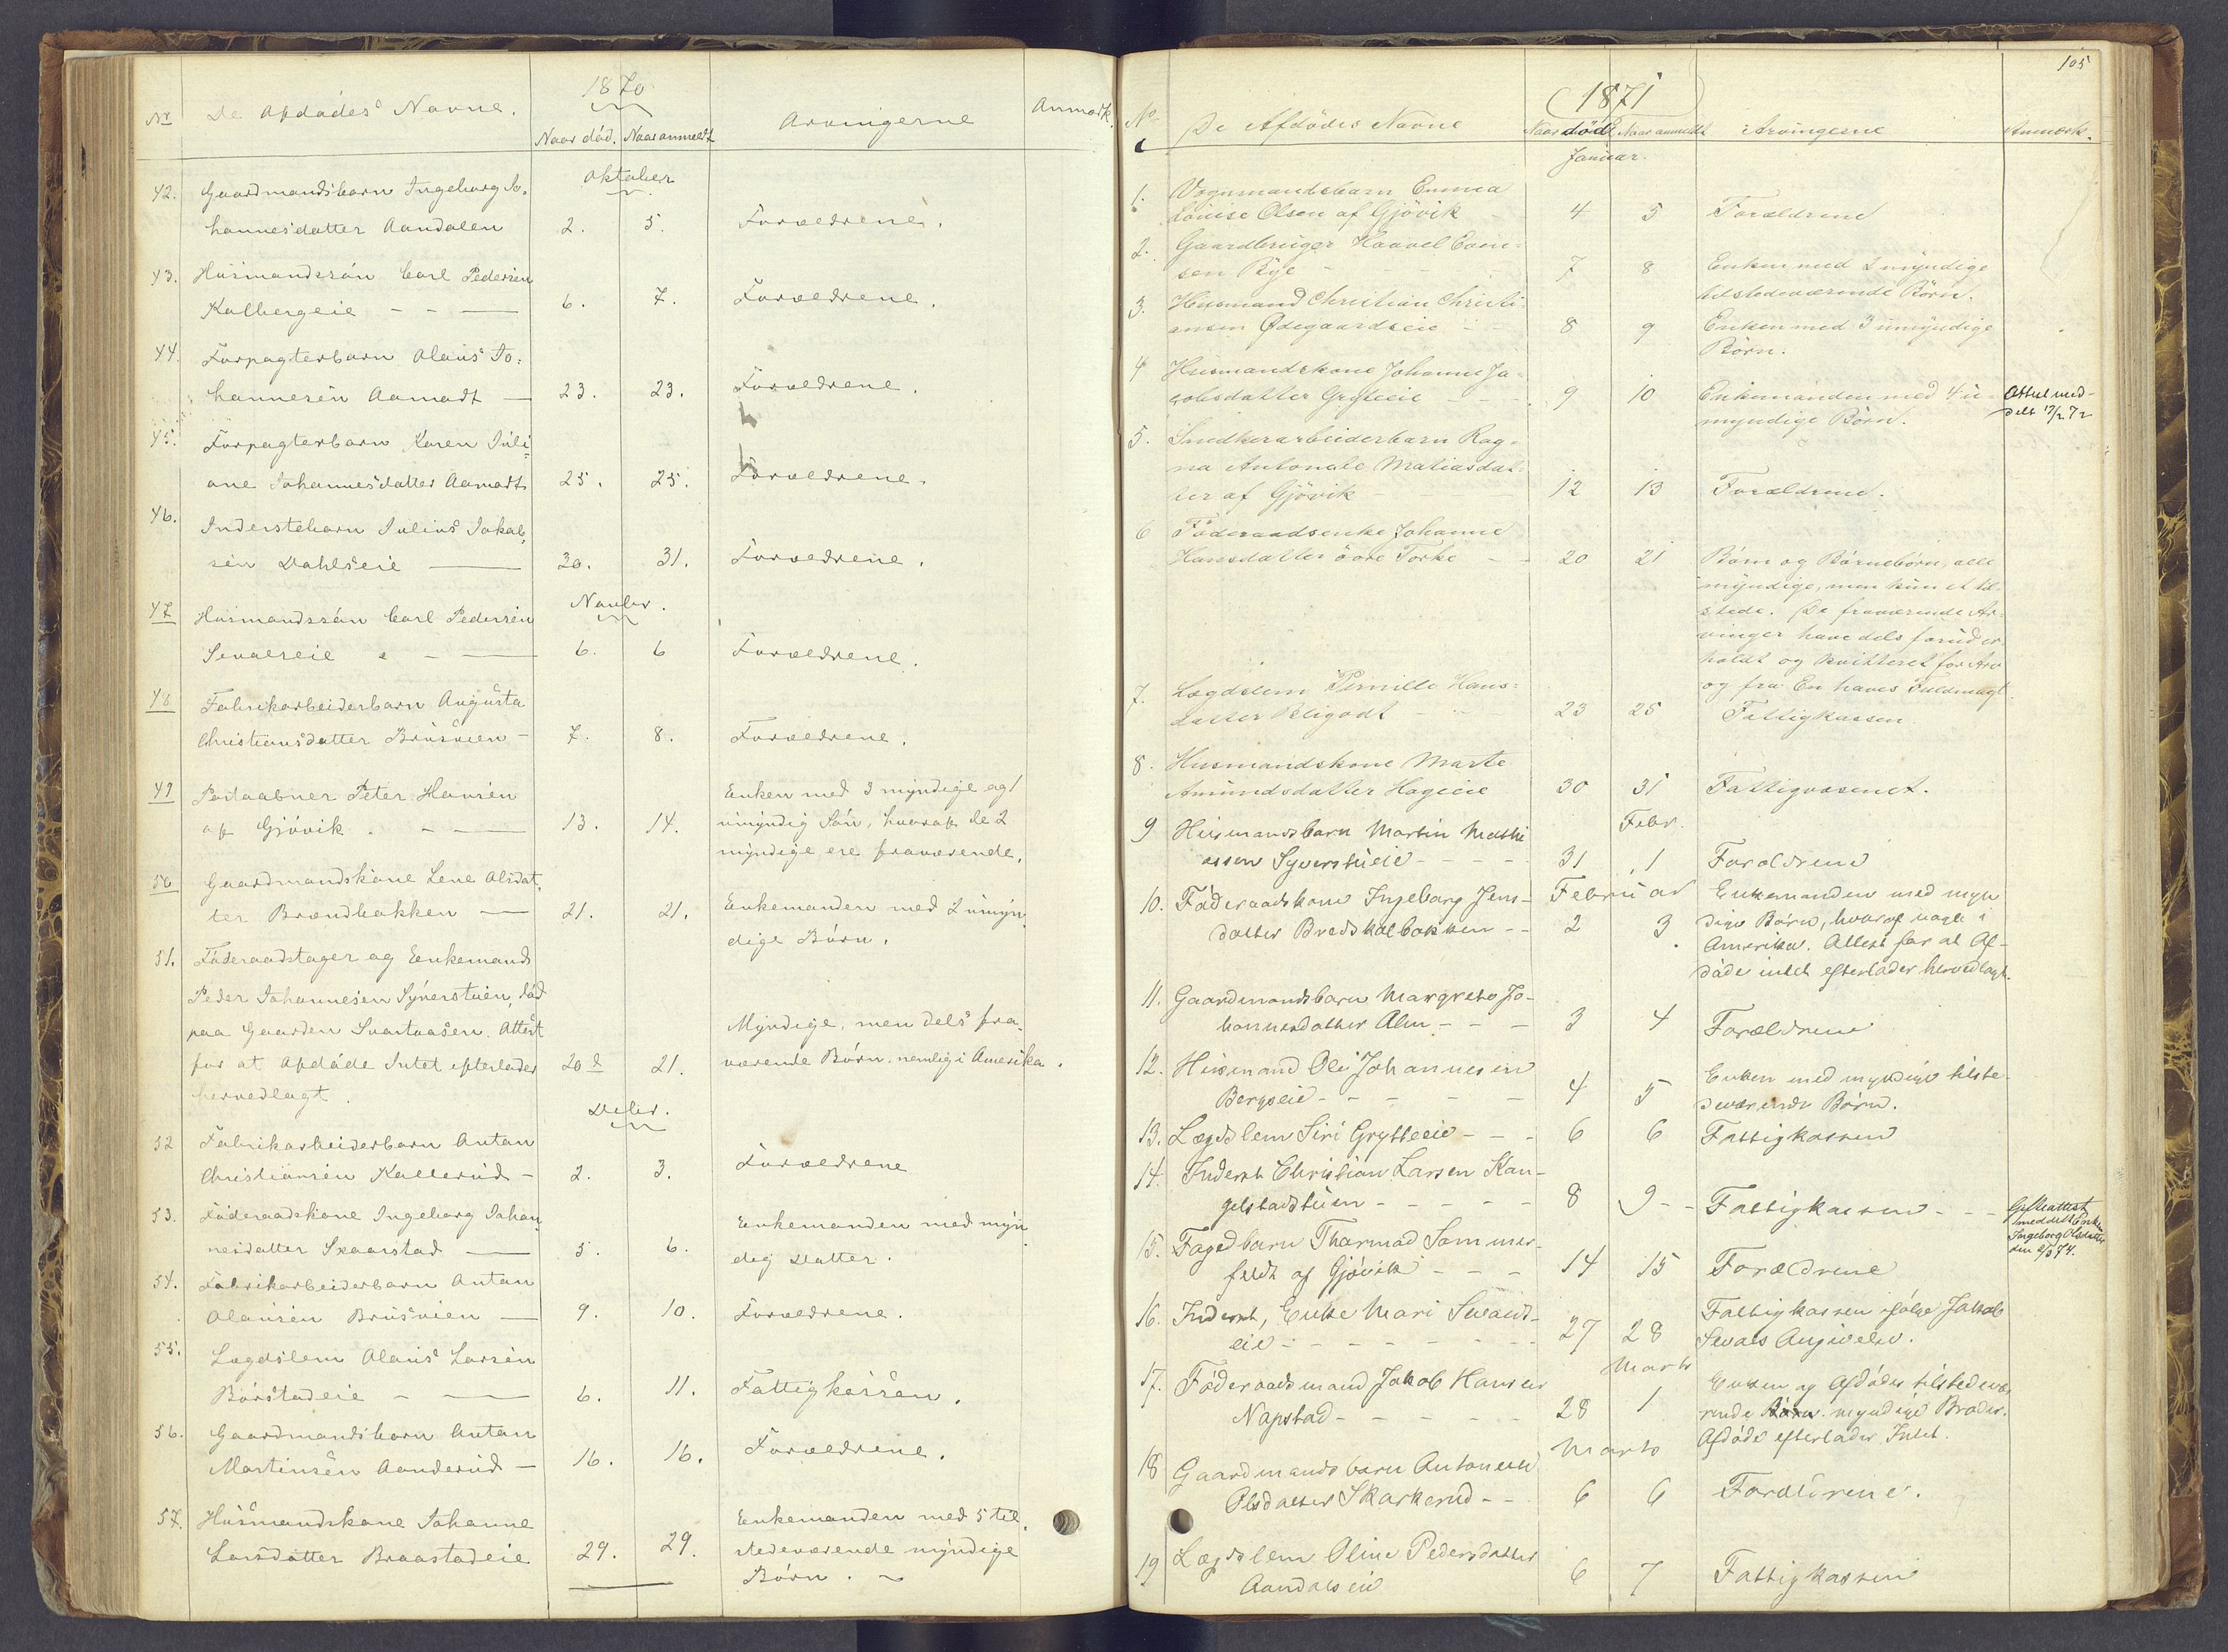 1870
Nr De Afdödes Navne. Naar död. Naar anmeldt Arvingerne Anmærk.
Oktober
42. Gaardmandsbarn Ingeborg Jo-
hannesdatter Aandalen 2. 5. Forældrene.
43. Husmandssön Carl Pedersen
Kalbergeie - - — 6. 7. Forældrene.
44. Forpagterbarn Olaus Jo:
hannesen Aamodt — 23. 23. Forældrene.
45. Forpagterbarn Karen Juli:
ane Johannesdatter Aamodt 25. 25. Forældrene.
46. Inderstebarn Julius Jakob-
sen Dahlseie — 30. 31. Forældrene.
Novbr.
47 Husmandssön Carl Pedersen
Sevalseie - — 6. 6 Forældrene.
48 Fabrikarbeiderbarn Augusta
Christiansdatter Brusveen - 7. 8. Forældrene.
49 Postaabner Peter Hansen
af Gjövik. - — 13. 14.
Enken med 3 myndige og 1
umyndig Sön, hvoraf de 2
myndige ere fraværende.
50 Gaardmandskone Lene Olsdat-
ter Brændbakken — 21. 21.
Enkemanden med 2 umyn-
dige Börn.
51. Föderaadstager og Enkemand
Peder Johannesen Syverstuen, död
paa Gaarden Svartaasen. Attest
for at Afdöde Intet efterlader
hervedlagt. 20de 21.
Myndige, men dels fra-
værende Börn, nemlig i Amerika.
Decbr.
52 Fabrikarbeiderbarn Anton
Christiansen Kallerud - 2. 3. Forældrene
53. Föderaadskone Ingeborg Johan-
nesdatter Skaarstad — 5. 6.
Enkemanden med myn-
dig Datter.
54. Fabrikarbeiderbarn Anton
Olausen Brusveen — 9. 10. Forældrene.
55. Lægdslem Olaus Larsen
Börstadeie - — 6. 11. Fattigkassen.
56. Gaardmandsbarn Anton
Martinsen Aanderud — 16. 16. Forældrene.
57. Husmandskone Johanne
Larsdatter Braastadeie 29. 29.
Enkemanden med 5 til-
stedeværende myndige
Börn.
105
1871
No. De Afdödes Navne Naar död Naar anmeldt Arvingerne Anmærk.
Januar.
1. Vognmandsbarn Emma
Louise Olsen af Gjövik 4 5 Forældrene
2. Gaardbruger Haavel Even-
sen Bye - - - 7 8 Enken med 2 myndige
tilstedeværende Börn.
3. Husmand Christian Christi-
ansen Ødegaardseie - - 8 9 Enken med 3 umyndige
Börn.
4 Husmandskone Johanne Ja-
cobsdatter Gryteeie - - - 9 10 Enkemanden med 4 u-
myndige Börn.
Attest med-
delt 17/2 72
5. Snedkerarbeiderbarn Rag-
na Antonette Matiasdat-
ter af Gjövik - - 12 13 Forældrene.
6 Föderaadsenke Johanne
Hansdatter övre Torke - - 20 21 Börn og Börnebörn, alle
myndige, men kun et til-
stede. De fraværende Ar-
vinger have dels forud er-
holdt og kvitteret for Arv
og fra En haves Fuldmagt.
7. Lægdslem Pernille Hans-
datter Bligodt - - 23 25 Fattigkassen
8. Husmandskone Marte
Amundsdatter Hageeie 30 31 Fattigvæsenet.
Febr.
9 Husmandsbarn Martin Mathi
assen Syverstueie - - - - 31 1 Forældrene
Februar
10. Föderaadskone Ingeborg Jens-
datter Bredskalbakken - - 2 3
Enkemanden med myn
dige Börn, hvoraf nogle i
Amerika. Attest for at Af-
döde intet efterlader hervedlagt.
11. Gaardmandsbarn Margrete Jo-
hannesdatter Alm - - - 3 4 Forældrene
12. Husmand Ole Johannesen
Bergseie - - - - - 4 5
Enken med myndige tilste-
deværende Börn.
13. Lægdslem Siri Grytteeie - - - 6 6 Fattigkassen
14. Inderst Christian Larsen Kan-
gelstadstuen - - - - - 8 9 - - Fattigkassen - - -
Gifteattest
meddelt Enken
Ingeborg Olsdatter
den 2/3 74.
15. Fogedbarn Thormod Sommer-
feldt af Gjövik - - - 14 15 Forældrene
16. Inderst, Enke Mari Swaens-
eie - - - - - - - 27 28
Fattigkassen ifölge Jakob
Sevals Angivelse.
Marts
17. Föderaadsmand Jakob Hansen
Napstad - - - - - 28 1
Enken og Afdödes tilstedevæ
rende Börn. myndige Broder.
Afdöde efterlader Intet.
Marts
18 Gaardmandsbarn Antonette
Olsdatter Skarkerud - - 6 6 Forældrene.
19 Lægdslem Oline Pedersdatter
Aandalseie 6 7 Fattigkassen